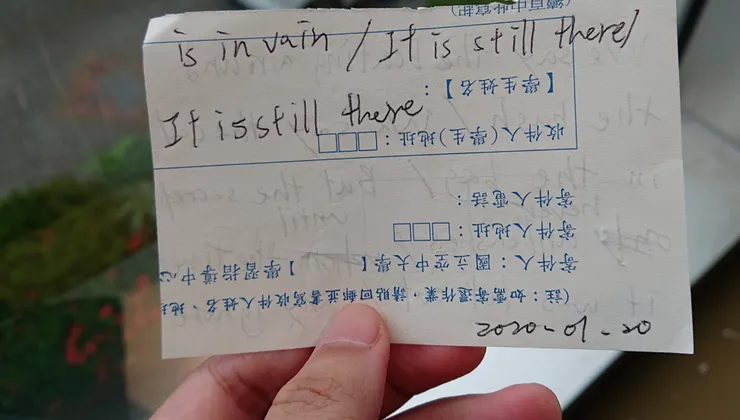 is in vain / It is still there/
It is still there
2020-01-20
(註：如需寄還作業，請貼回郵並書寫收件人姓名、地
寄件人：國立空中大學【 】學習指導中心
寄件人地址：□□□
寄件人電話：
收件人(學生)地址：□□□
【學生姓名】：